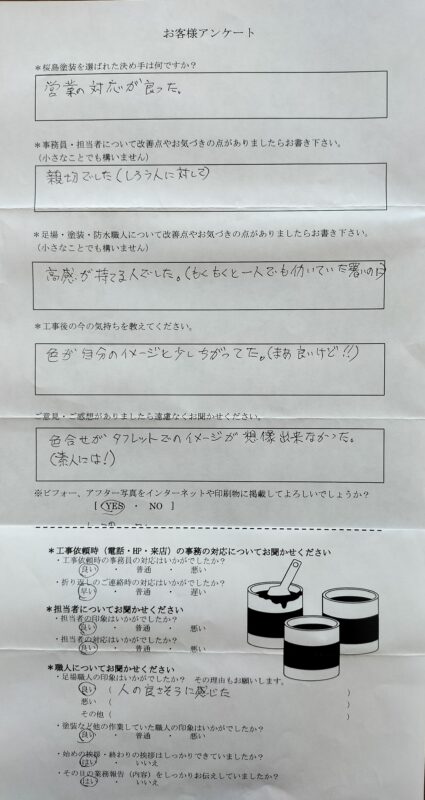 お客様アンケート
＊桜島塗装を選ばれた決め手は何ですか？
営業の対応が良った。
＊事務員・担当者について改善点やお気づきの点がありましたらお書き下さい。
（小さなことでも構いません）
親切でした（しろう人に対して）
＊足場・塗装・防水職人について改善点やお気づきの点がありましたらお書き下さい。
（小さなことでも構いません）
高感が持てる人でした。（もくもくと一人でも仂いていた暑いのに）
＊工事後の今の気持ちを教えてください。
色が自分のイメージと少しちがってた。（まあ良いけど!!）
ご意見・ご感想がありましたら遠慮なくお聞かせください。
色合せがタブレットでのイメージが想像出来なかった。
（素人には!）
※ビフォー、アフター写真をインターネットや印刷物に掲載してよろしいでしょうか？
[ YES ・ NO ]
＊工事依頼時（電話・HP・来店）の事務の対応についてお聞かせください
・工事依頼時の事務員の対応はいかがでしたか？
良い ・ 普通 ・ 悪い
・折り返しのご連絡時の対応はいかがでしたか？
早い ・ 普通 ・ 遅い
＊担当者についてお聞かせください
・担当者の印象はいかがでしたか？
良い ・ 普通 ・ 悪い
・担当者の対応はいかがでしたか？
良い ・ 普通 ・ 悪い
＊職人についてお聞かせください
・足場職人の印象はいかがでしたか？ その理由もお願いします。
良い （ 人の良さそうに感じた ）
悪い （ ）
その他（ ）
・塗装など他の作業していた職人の印象はいかがでしたか？
良い ・ 普通 ・ 悪い
・始めの挨拶・終わりの挨拶はしっかりできていましたか？
はい ・ いいえ
・その日の業務報告（内容）をしっかりお伝えしていましたか？
はい ・ いいえ